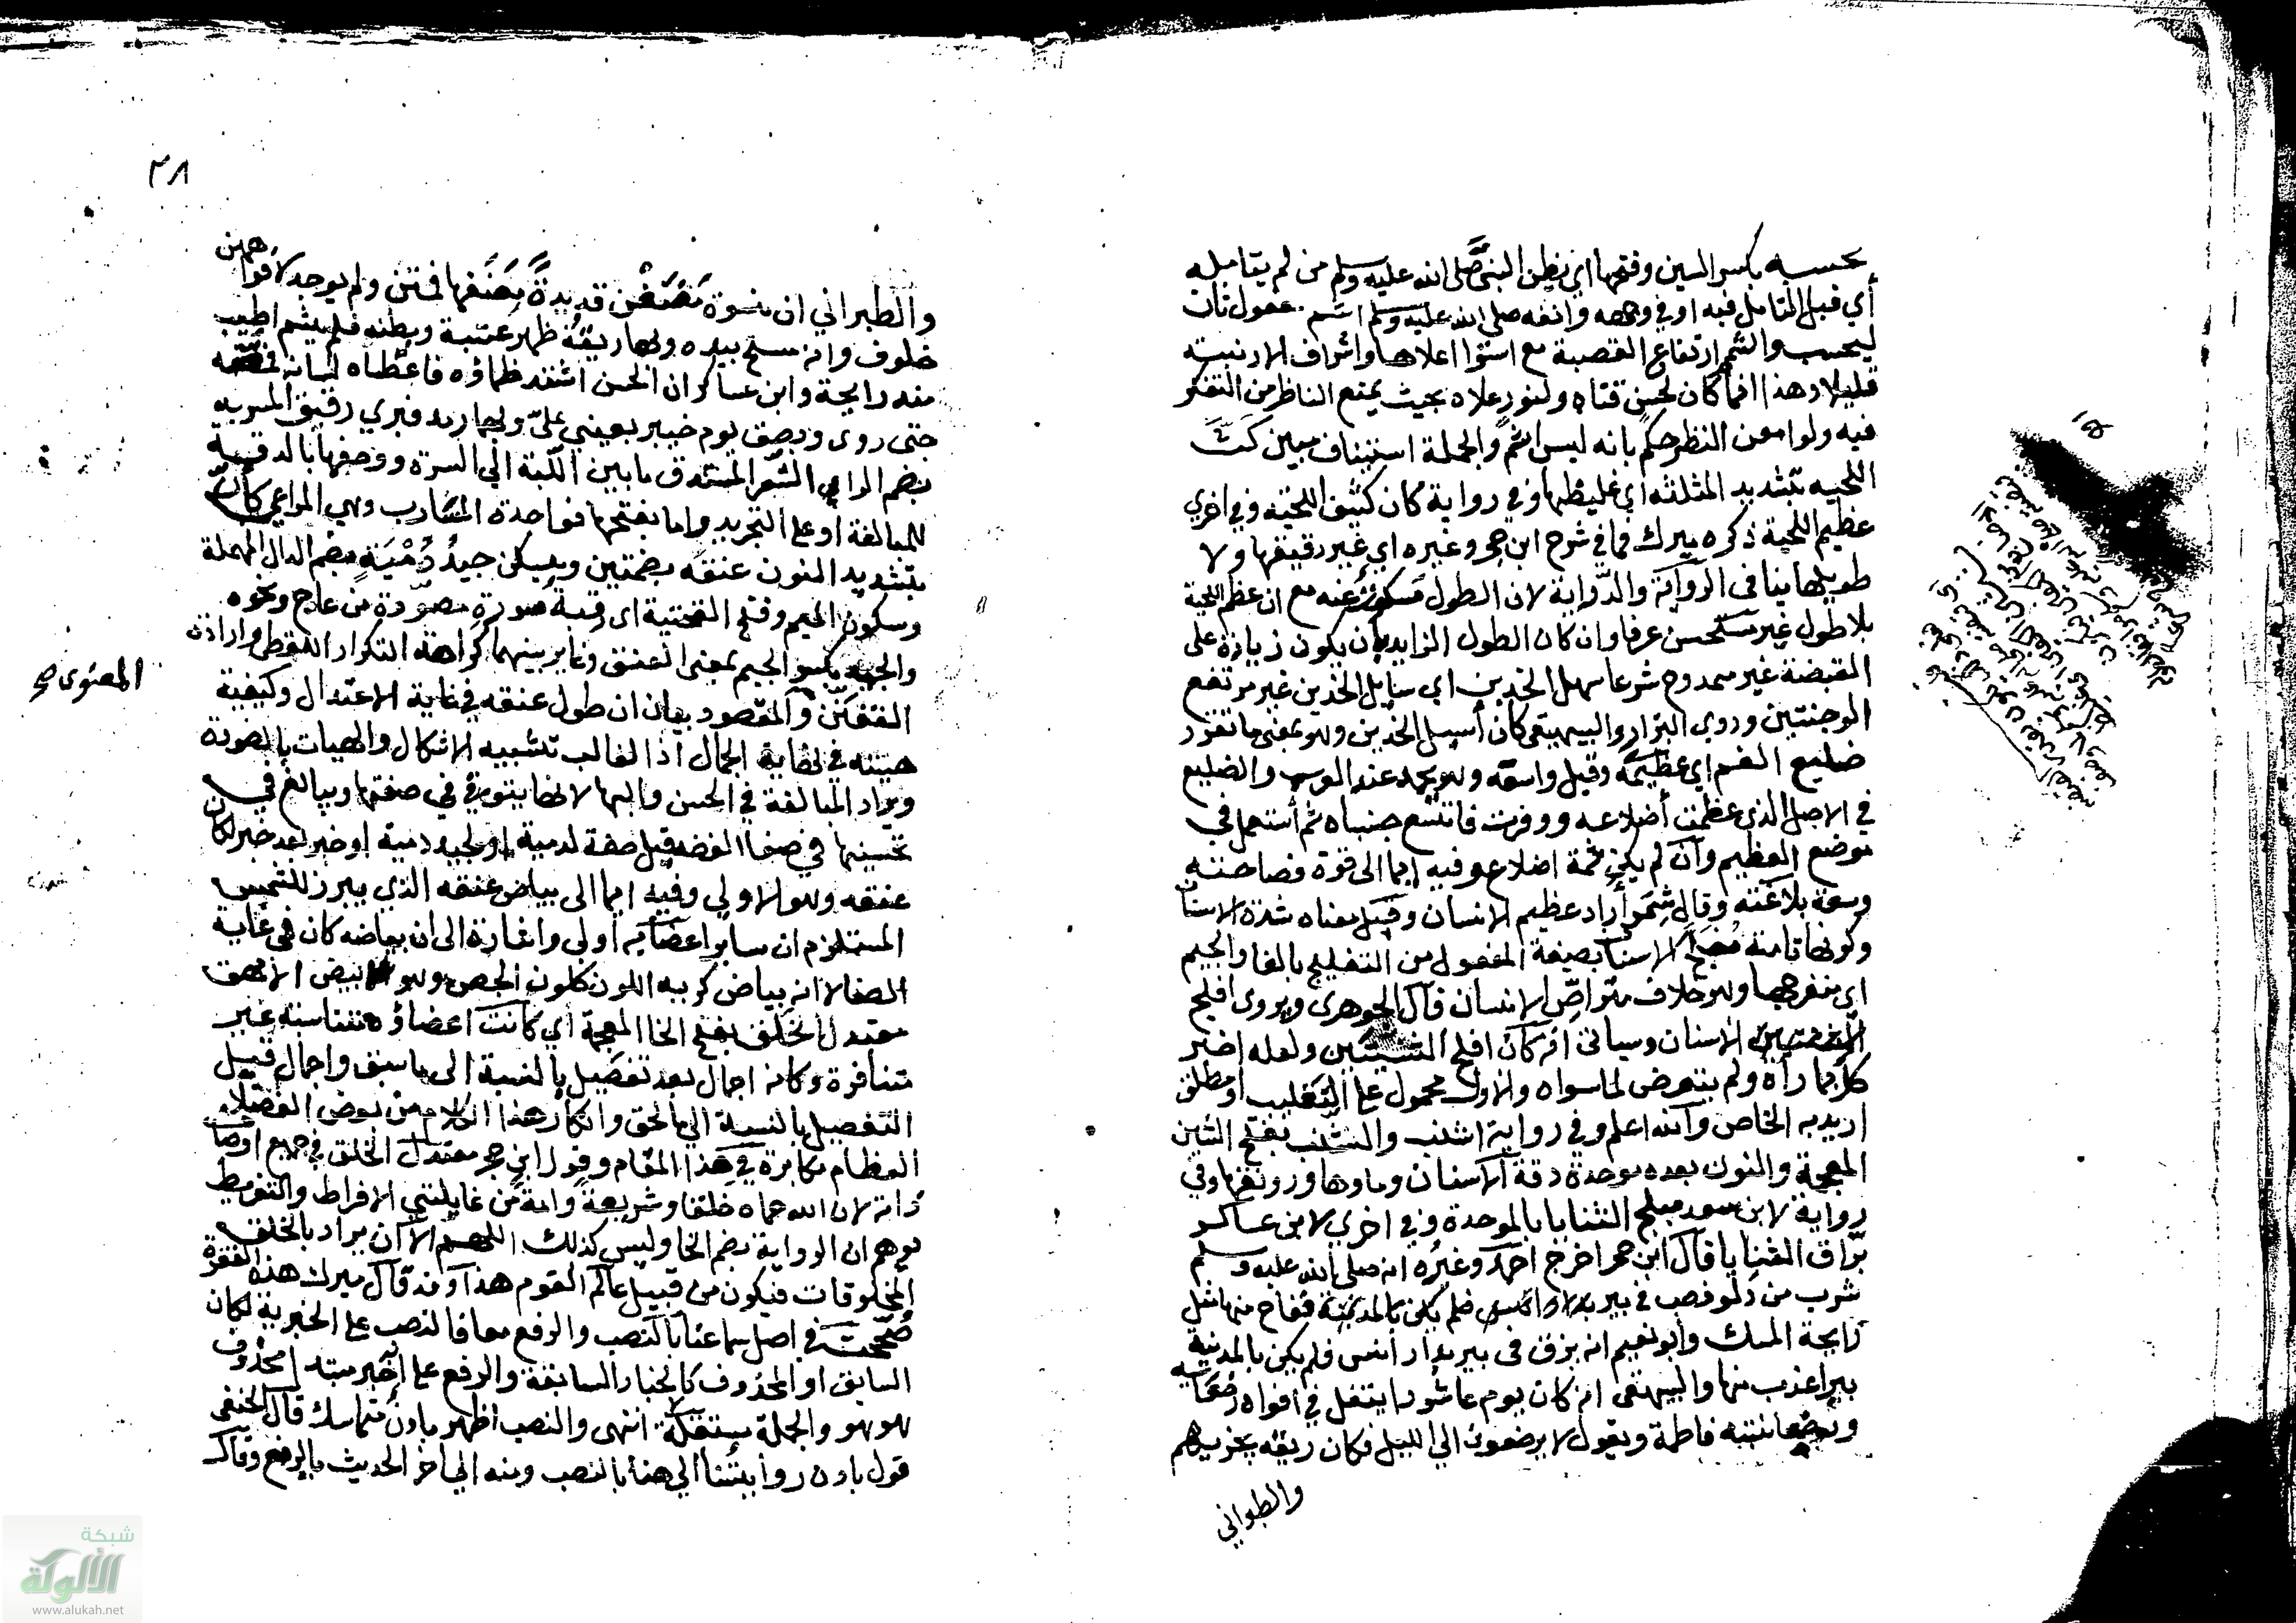 يحسبه بكسر السين وفتحها اي يظن النبي صلى الله عليه وسلم من لم يتأمله
أي قبل التامل فيه او في وجهه وانفه صلى الله عليه وسلم اشم مفعول ثان
ليحسب والشم ارتفاع القصبة مع استوا اعلاها واشراف الارنبة
قليلا وهذا انما كان لحسن قناه ولنور علاه بحيث يمنع الناظر من التفكر
فيه ولو امعن النظر حكم بانه ليس اشم والجملة استيناف مبين كث
اللحيه بتشديد المثلثه أي غليظها وفي رواية كان كثيف اللحية وفي اخري
عظيم اللحية ذكره ميرك فما في شرح ابن حجر وغيره اي غير رقيقها ولا
طويلها ينافى الرواية والدراية لان الطول مسكوت عنه مع ان عظم اللحية
بلا طول غير مستحسن عرفا وان كان الطول الزايد بأن يكون زيادة على
القبضة غير ممدوح شرعا سهل الخدين اي سايل الخدين غير مرتفع
الوجنتين وروي البزار والبيهقى كان أسيل الخدين وهو بمعنى ما تقرر
ضليع الفم اي عظيمه وقيل واسعه وهو يحمد عند العرب والضليع
في الاصل الذي عظمت أضلاعه ووفرت فاتسع جنباه ثم أستعمل في
موضع العظيم وان لم يكن ثمة اضلاع وفيه ايما الى قوة فصاحته
وسعة بلاغته وقال شمر أراد عظيم الاسنان وقيل معناه شدة الاسنان
وكونها تامة مفلج الاسنان بصيغة المفعول من التفليج بالفا والجيم
اي منفرجها وهو خلاف متراص الاسنان قال الجوهرى ويروى افلج
الاسنان وسياتى انه كان افلج الثنيتين ولعله اخبر
كل بما رآه ولم يتعرض لما سواه والاول محمول على التغليب او مطلق
اريد به الخاص والله اعلم وفي رواية اشنب والشنب بفتح الشين
المعجمة والنون بعده موحدة دقة الاسنان وماوها ورونقها وفي
رواية لابن سعد مبلج الثنايا بالموحدة وفي اخري لابن عساكر
براق الثنايا قال ابن حجر اخرج احمد وغيره انه صلى الله عليه وسلم
شرب من دلو فصب في بير ففاح منها مثل
رايحة المسك وأبو نعيم انه بزق فى بير بدار أنس فلم يكن بالمدينة
بير اعذب منها والبيهقى انه كان يوم عاشورا يتفل في أفواه رضعايه
ورضعا ابنته فاطمة ويقول لا يرضعون الي الليل فكان ريقه يجزيهم
والطبراني
٣٨
والطبراني ان نسوة مضغن قديدة مضغها فمتن ولم يوجد لافواههن
خلوف وانه مسح بيده وبها ريقه ظهر عتبة وبطنه فلم يشم اطيب
منه رايحة وابن عساكر ان الحسن اشتد ظماؤه فاعطاه لسانه فمصه
حتى روى وبصق يوم خيبر بعيني علي وبهما رمد فبري دقيق المسربه
بضم الرا هي الشعر المستدق ما بين اللبة الي السرة ووصفها بالدقة
للمبالغة او على التجريد واما بفتحها فواحدة المسارب وهي المراعى كأن
بتشديد النون عنقه بضمتين ويسكن جيد دمية بضم الدال المهملة
وسكون الميم وفتح التحتية اى رقبة صورة مصورة من عاج ونحوه
والجيد بكسر الجيم بمعنى العنق وغاير بينهما كراهة التكرار اللفظي وارادة
التفنن والمقصود بيان ان طول عنقه في غاية الاعتدال وكيفية
هيئته في نهاية الجمال اذ الغالب تشبيه الاشكال والهيات بالصورة
ويراد المبالغة في الحسن والبها لانها يتنوق في صفتها ويبالغ في
تحسينها في صفا الفضه قيل صفة لدمية او لجيد دمية او خبر بعد خبر لكان
عنقه وهو الاولي وفيه ايما الى بياض عنقه الذي يبرز للشمس
المستلزم ان ساير اعضائه أولى واشارة الى ان بياضه كان في غاية
الصفا لا انه بياض كريه اللون كلون الجص وهو الابيض الامهق
معتدل الخلق بفتح الخا المعجمة أي كانت اعضاؤه متناسبة غير
متنافرة وكانه اجمال بعد تفصيل بالنسبة الى ما سبق واجمال قبيل
التفصيل بالنسبة الي ما لحق وانكار هذا الكلام من بعض الفضلا
العظام مكابرة في هذا المقام وقول ابن حجر معتدل الخلق في جميع اوصاف
ذاته لان الله حماه خلقا وشريعة وامة من غايلتي الافراط والتفريط
يوهم ان الرواية بضم الخا وليس كذلك اللهم الا ان يراد بالخلق
المخلوقات فيكون من قبيل عالم القوم هذا وقد قال ميرك هذه الفقرة
صححت في اصل سماعنا بالنصب والرفع معا فالنصب على الخبرية لكان
السابق او المحذوف كالخبار السابقة والرفع على انه خبر مبتدا محذوف
هو هو والجملة مستقلة انتهى والنصب اظهر بادن متماسك قال الحنفى
قول بادن روايتنا الي هنا بالنصب ومنه الي اخر الحديث بالرفع وقال
المعنوى صح
شبكة
الألوكة
www.alukah.net